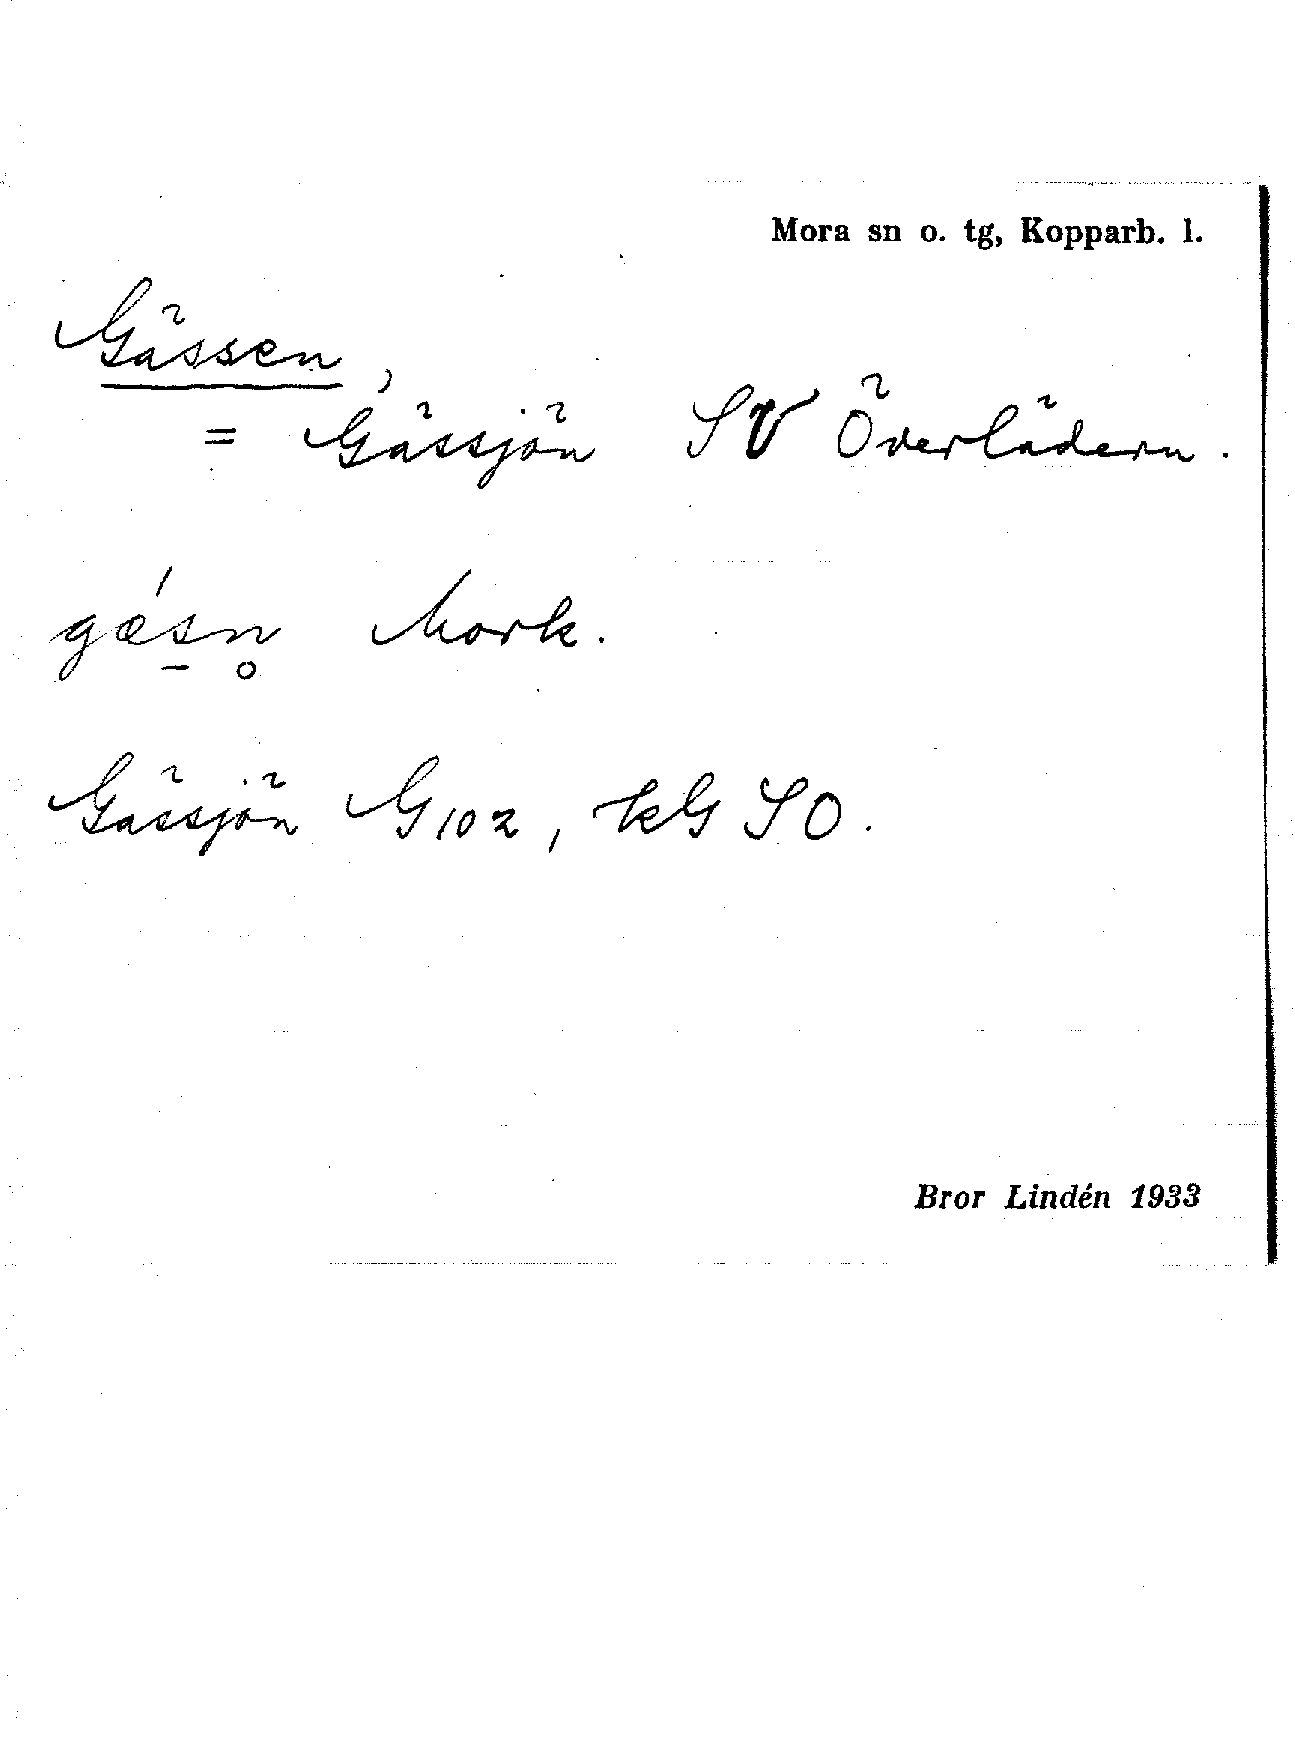 Mora sn o. tg, Kopparb. l.
Gässen,
= Gässjön SV Överlädern.
gǽs̱n̥ Mork.
Gässjön G102, kG SO.
Bror Lindén 1933